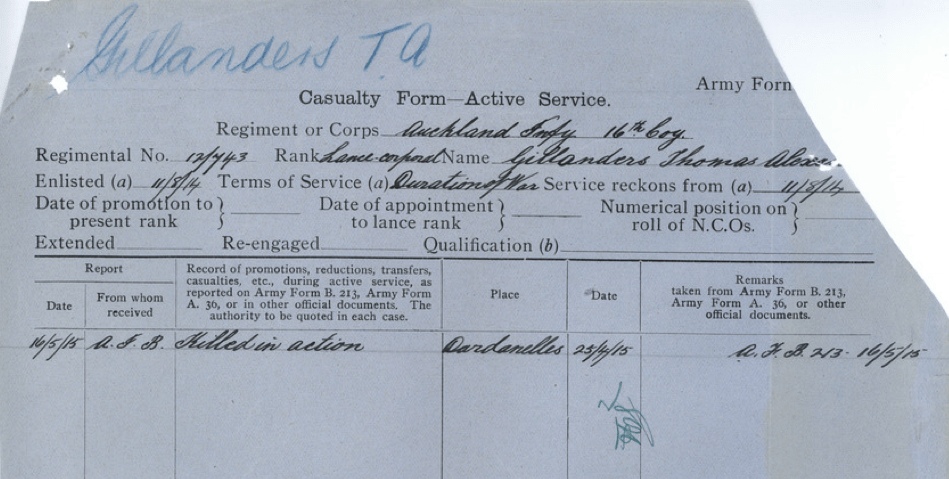 Gillanders T. A
Army Form
Casualty Form—Active Service.
Regiment or Corps Auckland Infy 16th Coy.
Regimental No. 12/743 Rank Lance-corporal Name Gillanders Thomas
Enlisted (a) 11/8/14 Terms of Service (a) Duration of War Service reckons from (a) 11/8/14
Date of promotion to present rank } Date of appointment to lance rank } Numerical position on roll of N.C.Os. }
Extended Re-engaged Qualification (b)
Report
Date
From whom received
Record of promotions, reductions, transfers,
casualties, etc., during active service, as
reported on Army Form B. 213, Army Form
A. 36, or in other official documents. The
authority to be quoted in each case.
Place
Date
Remarks
taken from Army Form B. 213,
Army Form A. 36, or other
official documents.
16/5/15 A. F. B. Killed in action Dardanelles 25/4/15 A. F. B. 213. 16/5/15